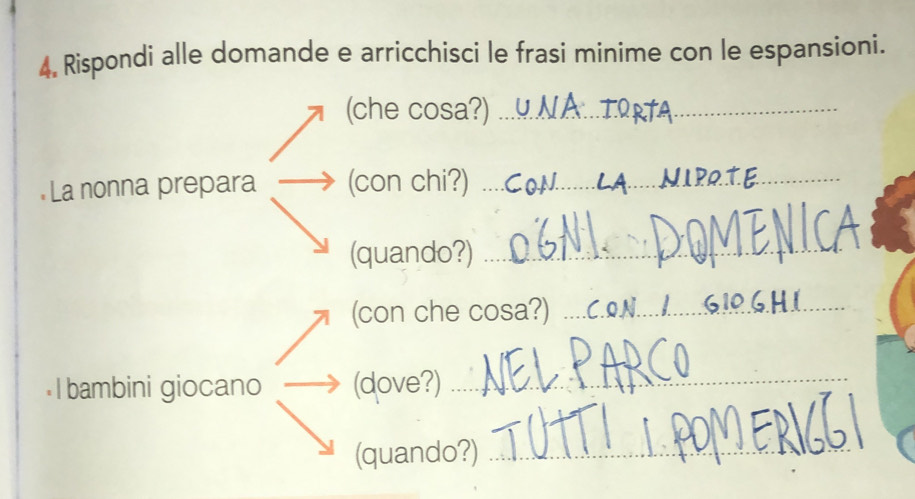 4. Rispondi alle domande e arricchisci le frasi minime con le espansioni.
(che cosa?) UNA TORTA
• La nonna prepara (con chi?) CON LA NIPOTE
(quando?) OGNI DOMENICA
(con che cosa?) CON I GIOGHI
• I bambini giocano (dove?) NEL PARCO
(quando?) TUTTI I POMERIGGI